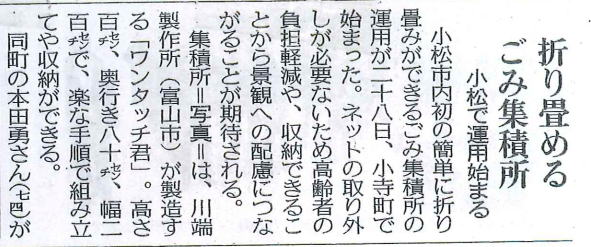 折り畳める
ごみ集積所
小松で運用始まる
小松市内初の簡単に折り
畳みができるごみ集積所の
運用が二十八日、小寺町で
始まった。ネットの取り外
しが必要ないため高齢者の
負担軽減や、収納できるこ
とから景観への配慮につな
がることが期待される。
集積所＝写真＝は、川端
製作所（富山市）が製造す
る「ワンタッチ君」。高さ
百㌢、奥行き八十㌢、幅二
百㌢で、楽な手順で組み立
てや収納ができる。
同町の本田勇さん（七四）が